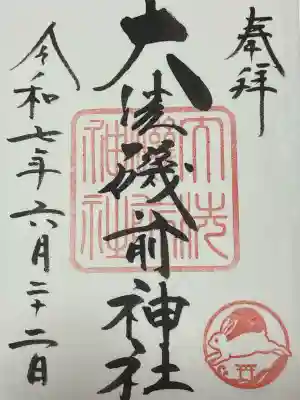 奉拝
大洗磯前神社
大洗
磯前
神社
令和七年六月二十二日